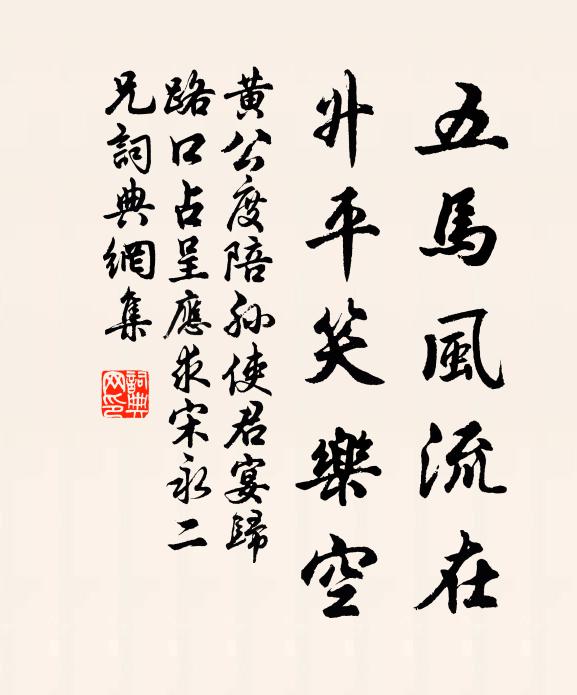 五馬風流在
升平笑樂空
黃公度陪孫使君宴歸
路口占呈應求宋永二
兄詞典網集
詞典
网印